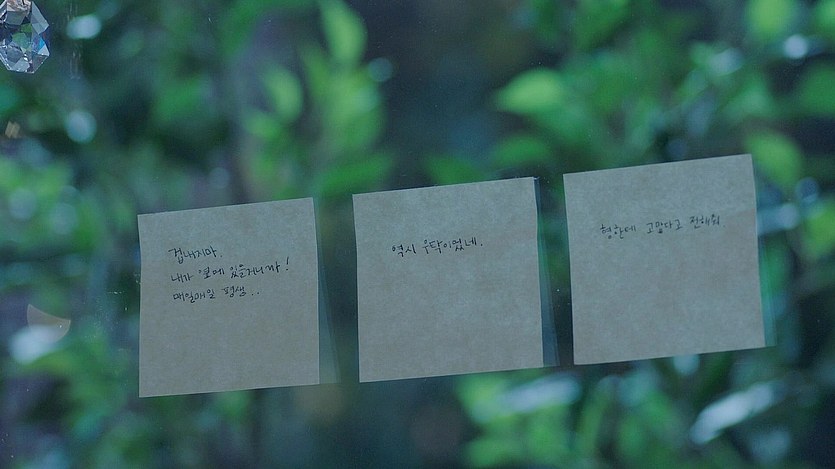 겁내지마.
내가 옆에 있을거니까!
매일매일 평생..
역시 우탁이었네.
형한테 고맙다고 전해줘